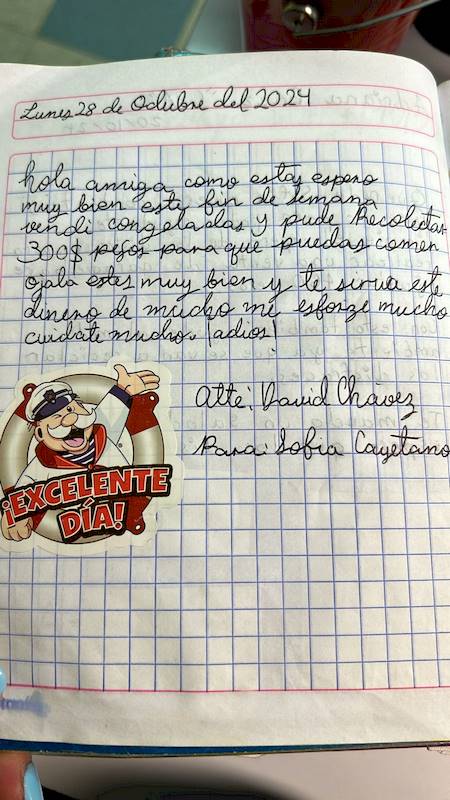 Lunes 28 de Octubre del 2024
hola amiga como estas espero
muy bien este fin de semana
vendi congeladas y pude Recolestar
300$ pesos para que puedas comer
ojala estes muy bien y te sirva este
dinero de mucho me esforze mucho
cuidate mucho. ¡adios!
Atte: David Chávez
Para: Sofia Cayetano
¡EXCELENTE
DÍA!